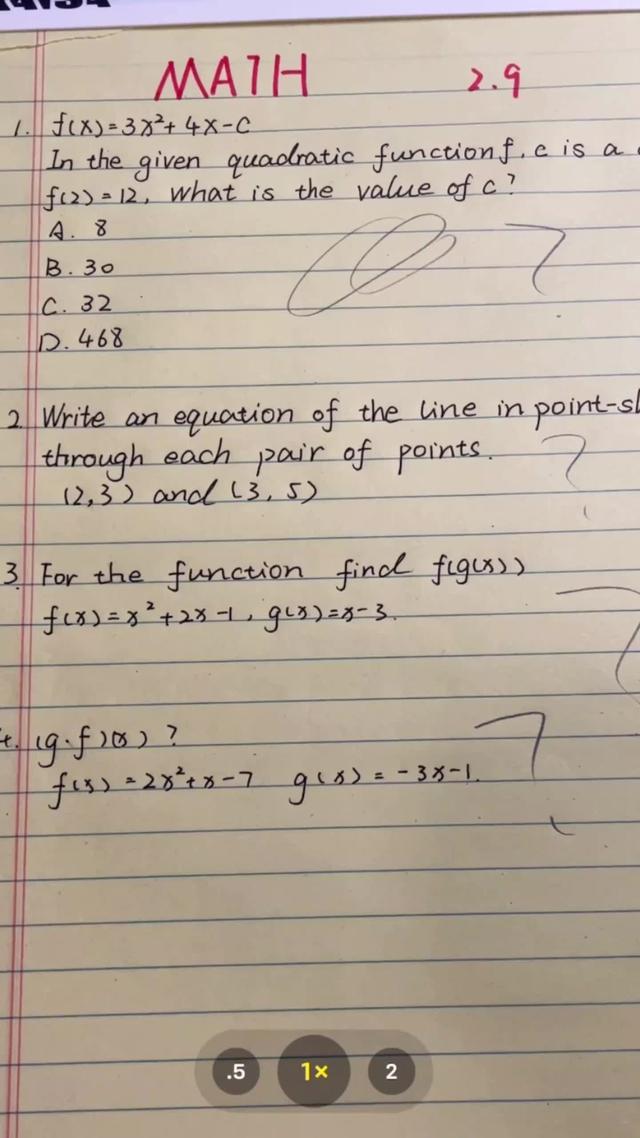 MATH 2.9
1. f(x)=3x²+4x-c
In the given quadratic function f, c is a
f(2)=12, what is the value of c?
A. 8
B. 30
C. 32
D. 468
2 Write an equation of the line in point-sl
through each pair of points.
(2,3) and (3,5)
3. For the function find f(g(x))
f(x)=x²+2x-1, g(x)=x-3.
(g·f)(x)?
f(x)=2x²+x-7 g(x)=-3x-1.
.5 1× 2